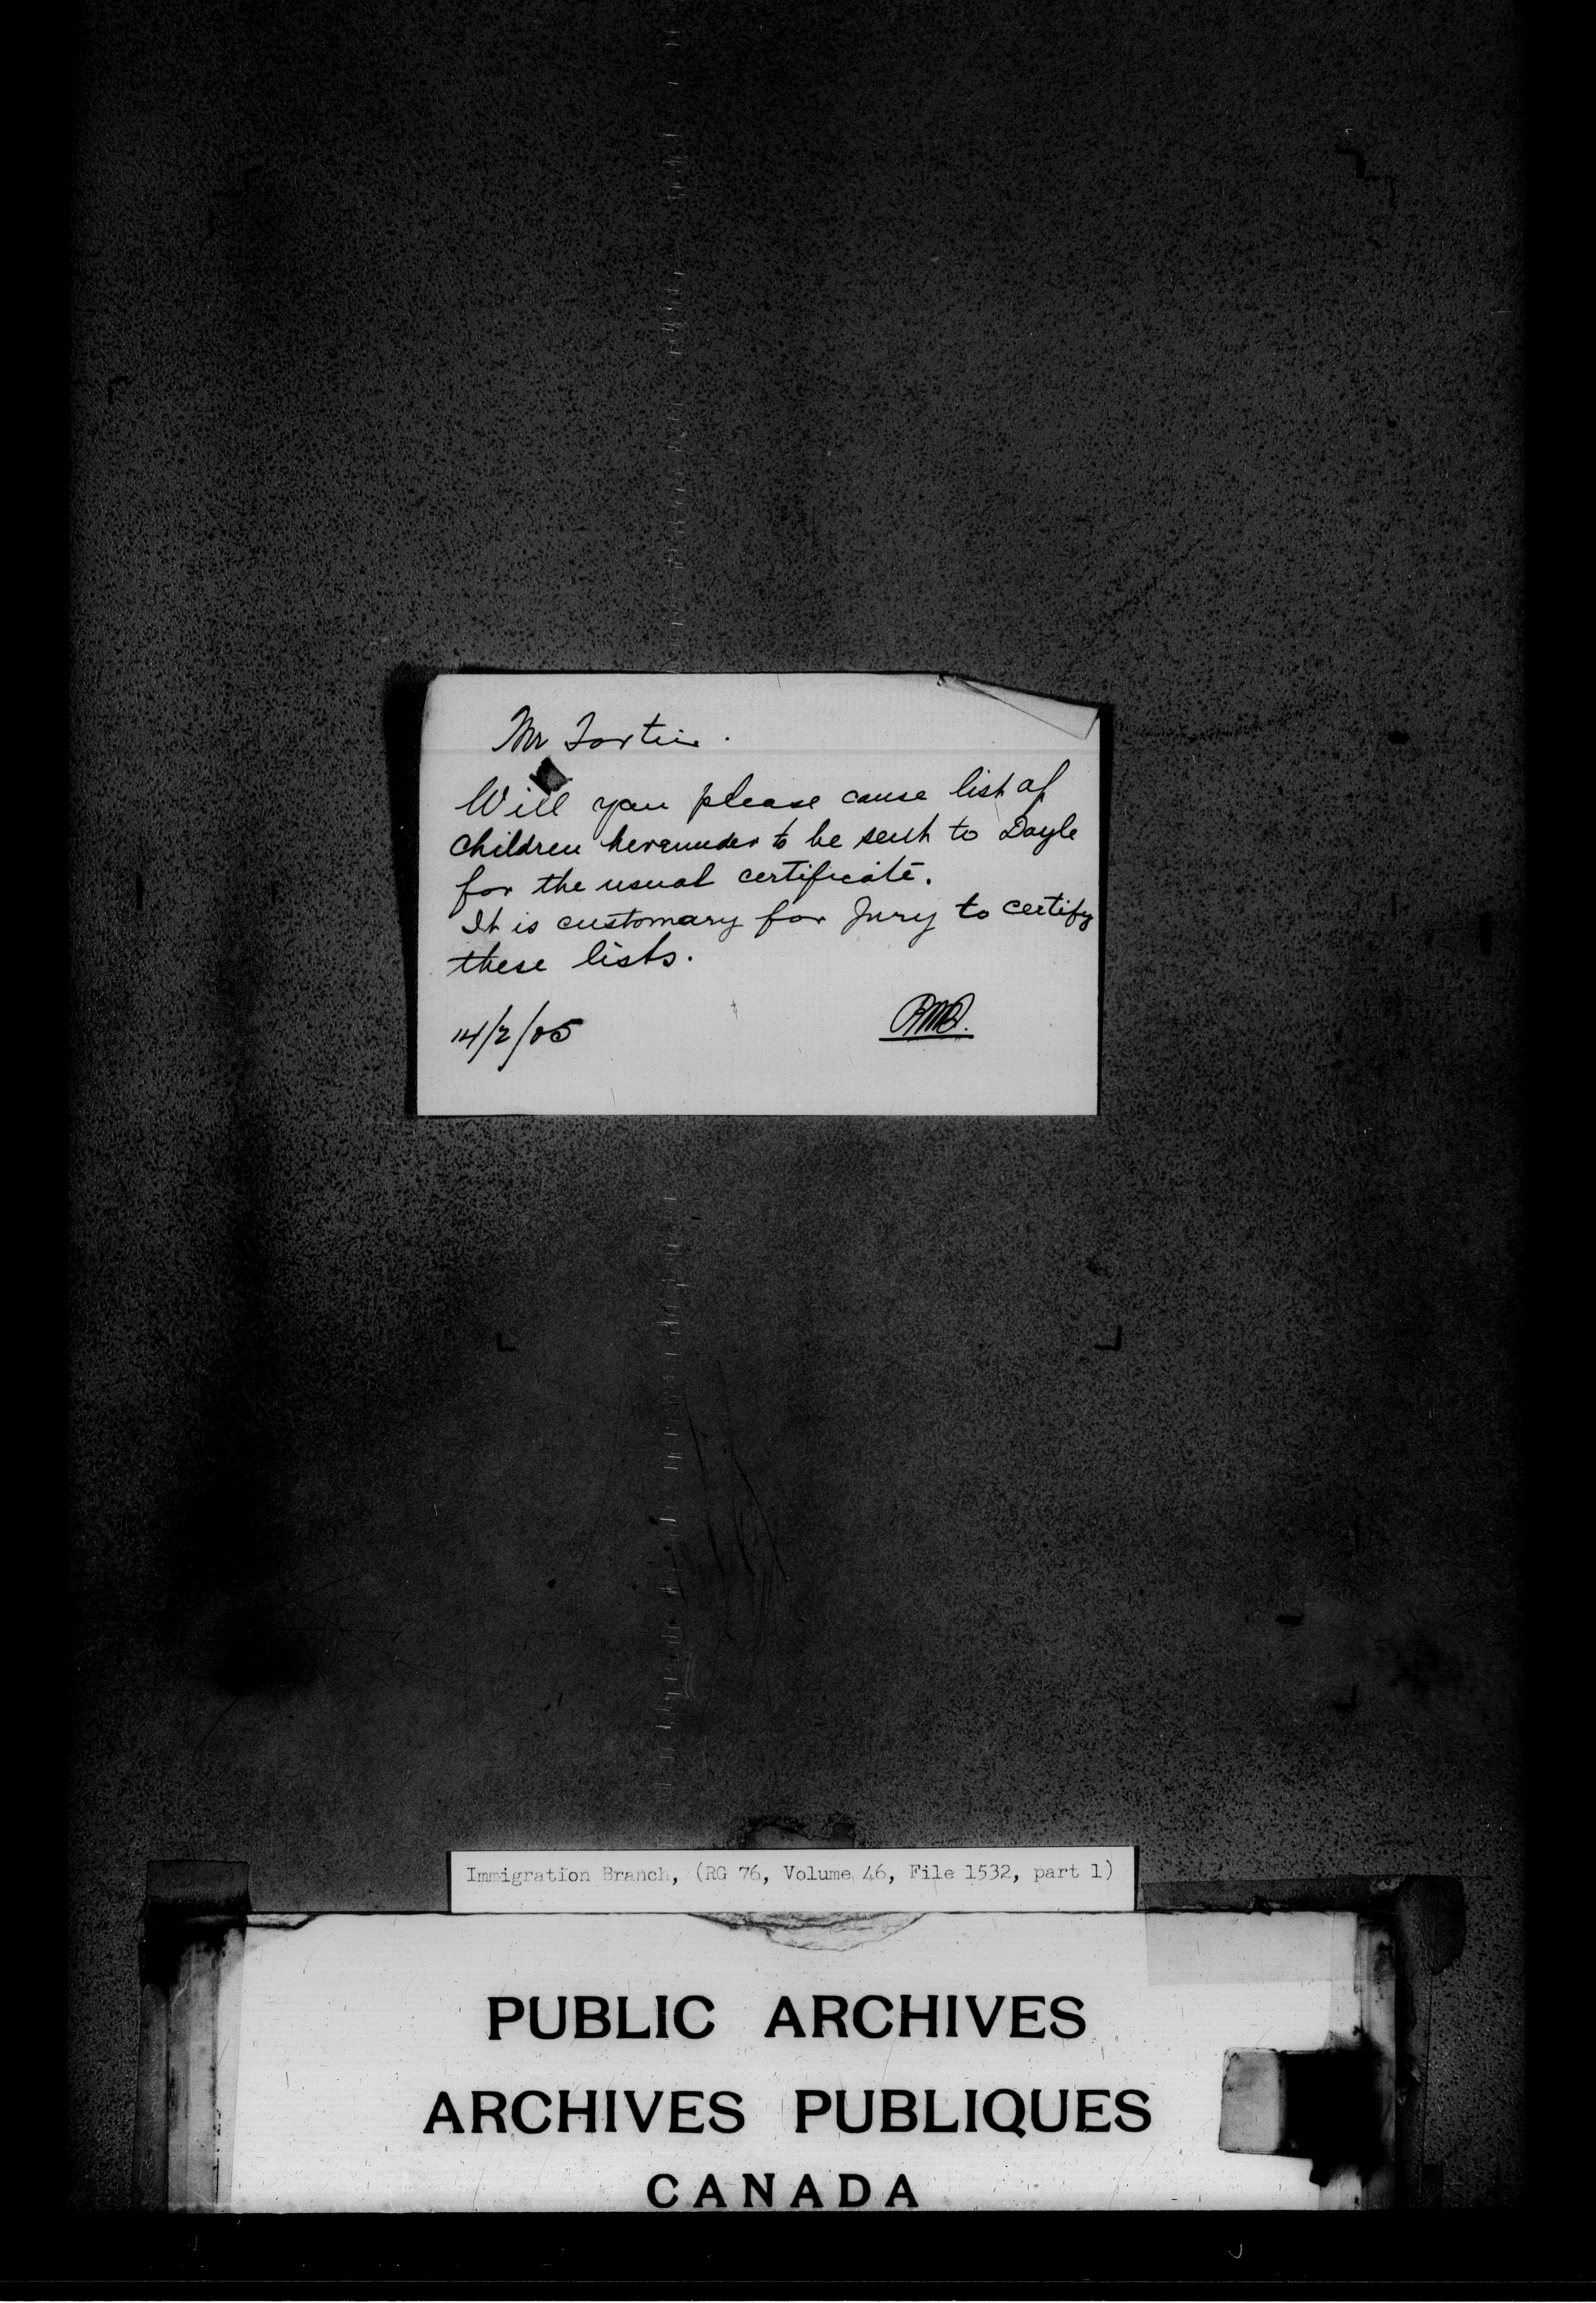 Mr Fortin.
Will you please cause list of
children hereunder to be sent to Doyle
for the usual certificate.
It is customary for Jury to certify
these lists.
14/2/05
Immigration Branch, (RG 76, Volume 46, File 1532, part 1)
PUBLIC ARCHIVES
ARCHIVES PUBLIQUES
CANADA